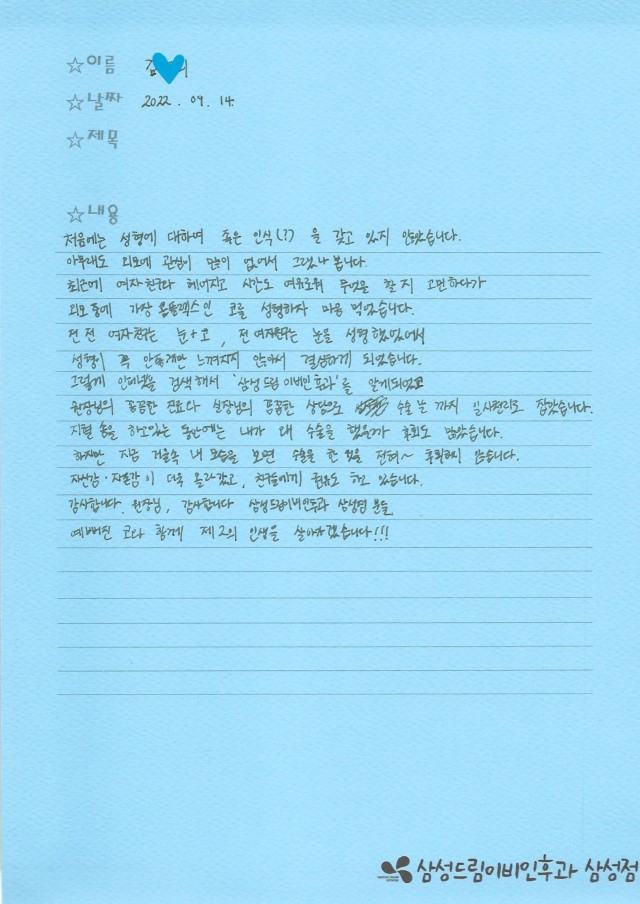 ☆이름 김 리
☆날짜 2022. 09. 14.
☆제목
☆내용
처음에는 성형에 대하여 혹은 인식(?)을 갖고 있지 안았습니다.
아무래도 외모에 관심이 많이 없어서 그랬나 봅니다.
최근에 여자친구와 헤어지고 시간도 여유로워 무엇을 할지 고민하다가
외모중에 가장 콤플렉스인 코를 성형하자 마음 먹었습니다.
전전 여자친구는 눈+코, 전 여자친구는 눈을 성형했었어서
성형이 꼭 안좋게만 느껴지지 않아서 결심하게 되었습니다.
그렇게 인터넷을 검색해서 '삼성드림이비인후과'를 알게되었고
원장님의 꼼꼼한 진료와 실장님의 꼼꼼한 상담으로 수술 날까지 일사천리로 잡았습니다.
지혈 솜을 하고있는 동안에는 내가 왜 수술을 했을까 후회도 많았습니다.
하지만 지금 거울속 내 모습을 보면 수술을 한 것을 전혀~ 후회하지 않습니다.
자신감·자존감이 더욱 올라갔고, 친구들에게 권유도 하고 있습니다.
감사합니다. 원장님, 감사합니다 삼성드림이비인후과 삼성점 분들
예뻐진 코와 함께 제2의 인생을 살아가겠습니다!!!
삼성드림이비인후과 삼성점